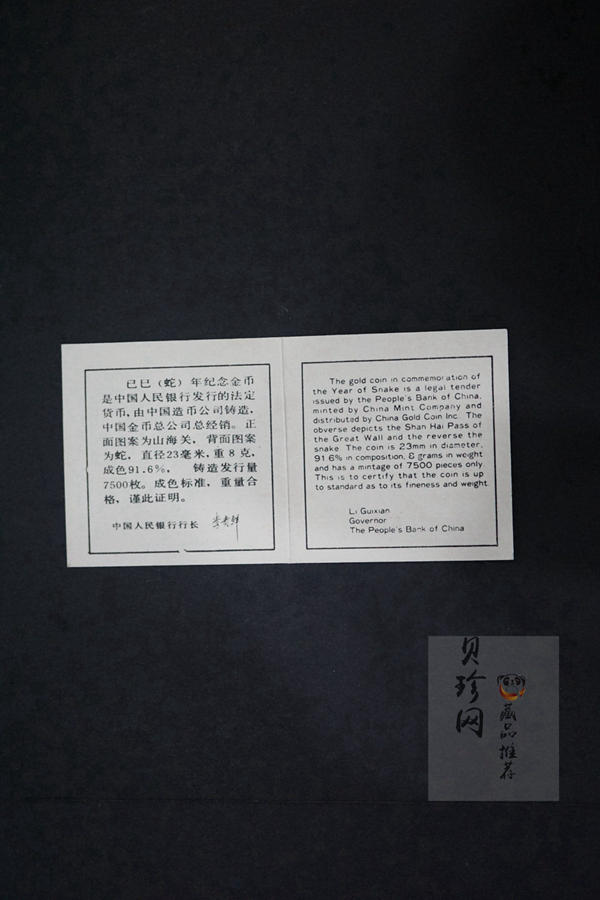 己巳（蛇）年纪念金币
是中国人民银行发行的法定
货币，由中国造币公司铸造，
中国金币总公司总经销。正
面图案为山海关，背面图案
为蛇，直径23毫米，重8克，
成色91.6%， 铸造发行量
7500枚。成色标准，重量合
格，谨此证明。
中国人民银行行长 李贵鲜
The gold coin in commemoration of
the Year of Snake is a legal tender
issued by the People's Bank of China,
minted by China Mint Company and
distributed by China Gold Coin Inc. The
obverse depicts the Shan Hai Pass of
the Great Wall and the reverse the
snake. The coin is 23mm in diameter,
91.6% in composition, 8 grams in weight
and has a mintage of 7500 pieces only.
This is to certify that the coin is up
to standard as to its fineness and weight.
Li Guixian
Governor
The People's Bank of China
贝珍网
藏品推荐